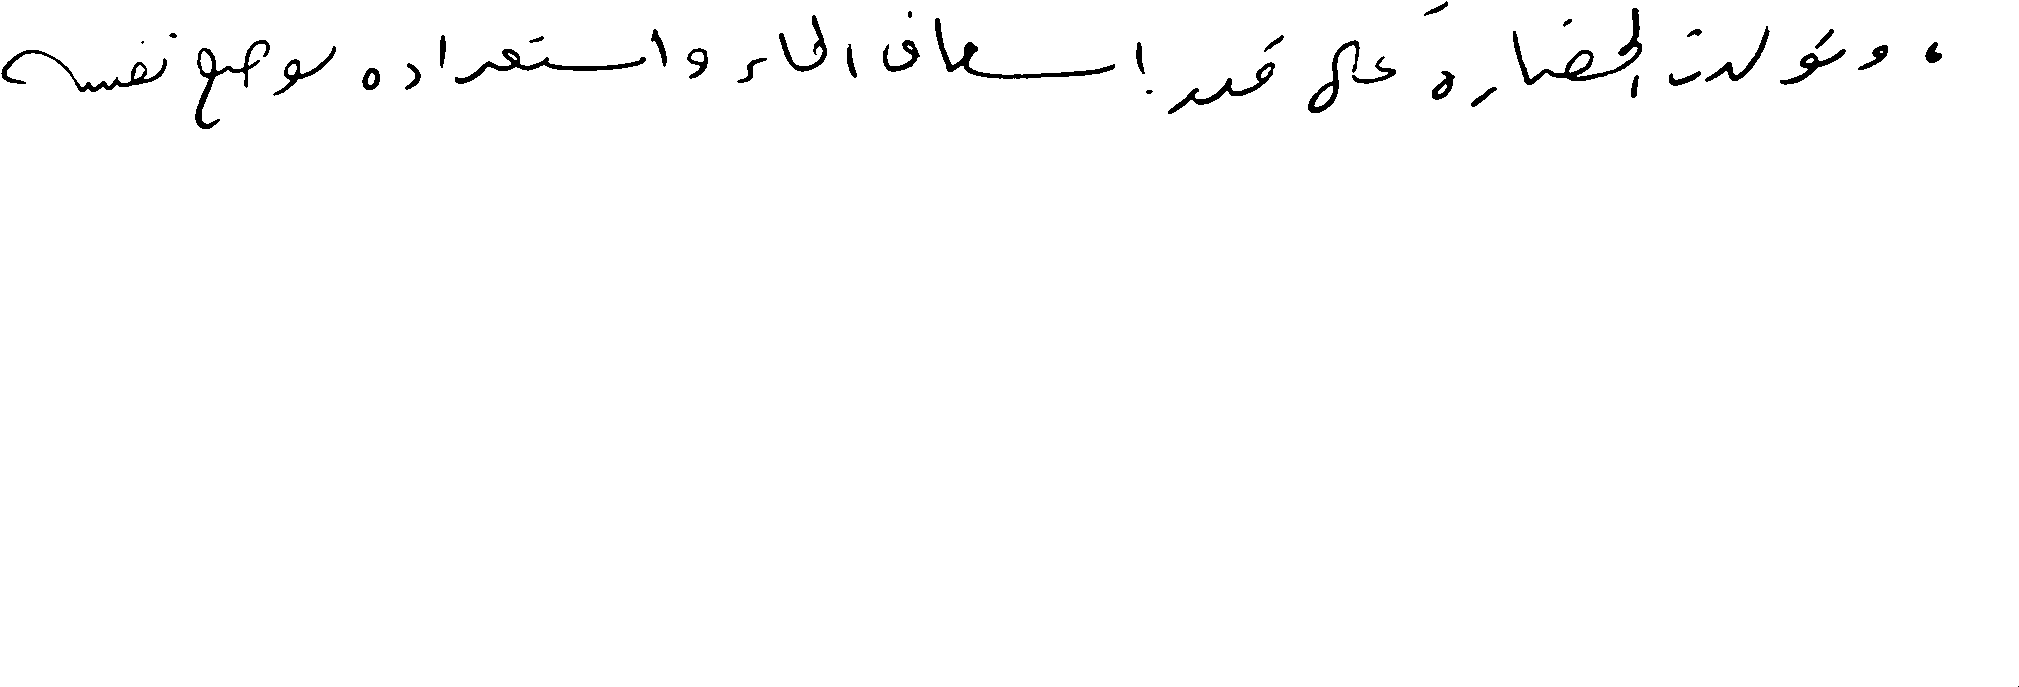 ، وتولدت الحضارة على قدر إسعاف الماء واستعداده لوضع نفسه